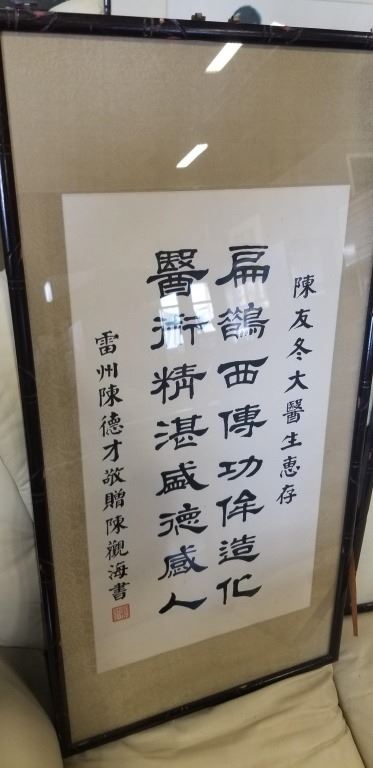 陳友冬大醫生惠存
扁鵲西傳功侔造化
醫術精湛盛德感人
雷州陳德才敬贈陳觀海書